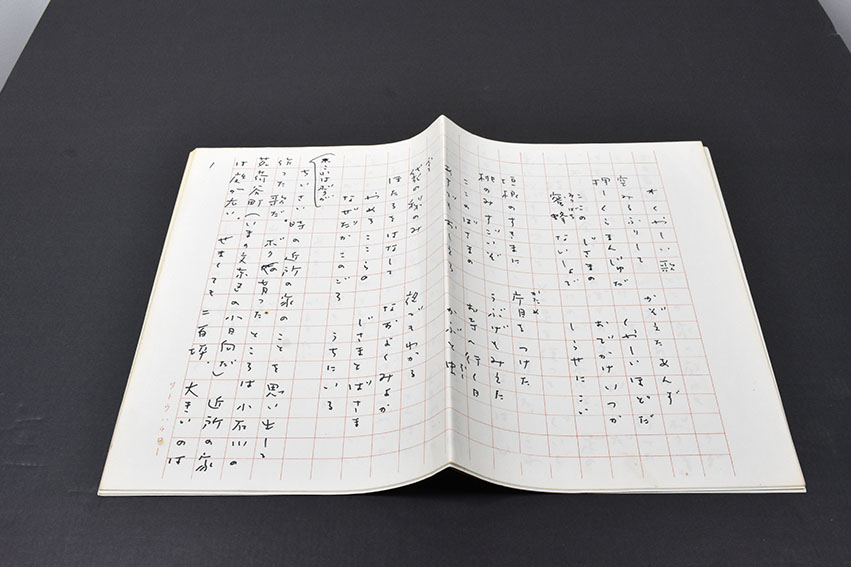 かぞえたあんず
ふりして くやしいほどだ
押しくらまんじゅだ おでかけいつか
ここの じざまの
蜜蜂 ないしょで
みつばち
垣根のすきまに 片目をつけた
かため
桃のみすごいぞ うぶげもみえた
ここのばさまの お寺へ行く日
かぶと虫
後でもわかる
ほたるをはなして なかよくみようか
やめろここらの じさまとばさま
なぜだかこのごろ うちにいる
ちいさい時の近所の家のことを思い出して
作った歌だ。ボクの育ったところは小石川の
茗荷谷町(いまの文京区の小日向だ) 近所の家
は庭が大い。せまくても二百坪、大きいのは
1